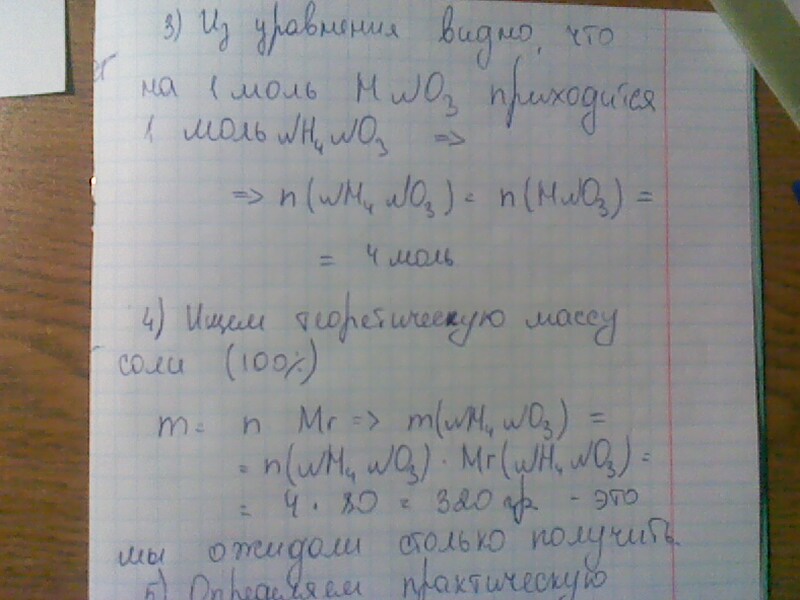 3) Из уравнения видно, что
на 1 моль HNO₃ приходится
1 моль NH₄NO₃ =>
=> n(NH₄NO₃) = n(HNO₃) =
= 4 моль
4) Ищем теоретическую массу
соли (100%)
m = n Mr => m(NH₄NO₃) =
= n(NH₄NO₃) · Mr(NH₄NO₃) =
= 4 · 80 = 320 гр. - это
мы ожидали столько получить.
5) Определяем практическую